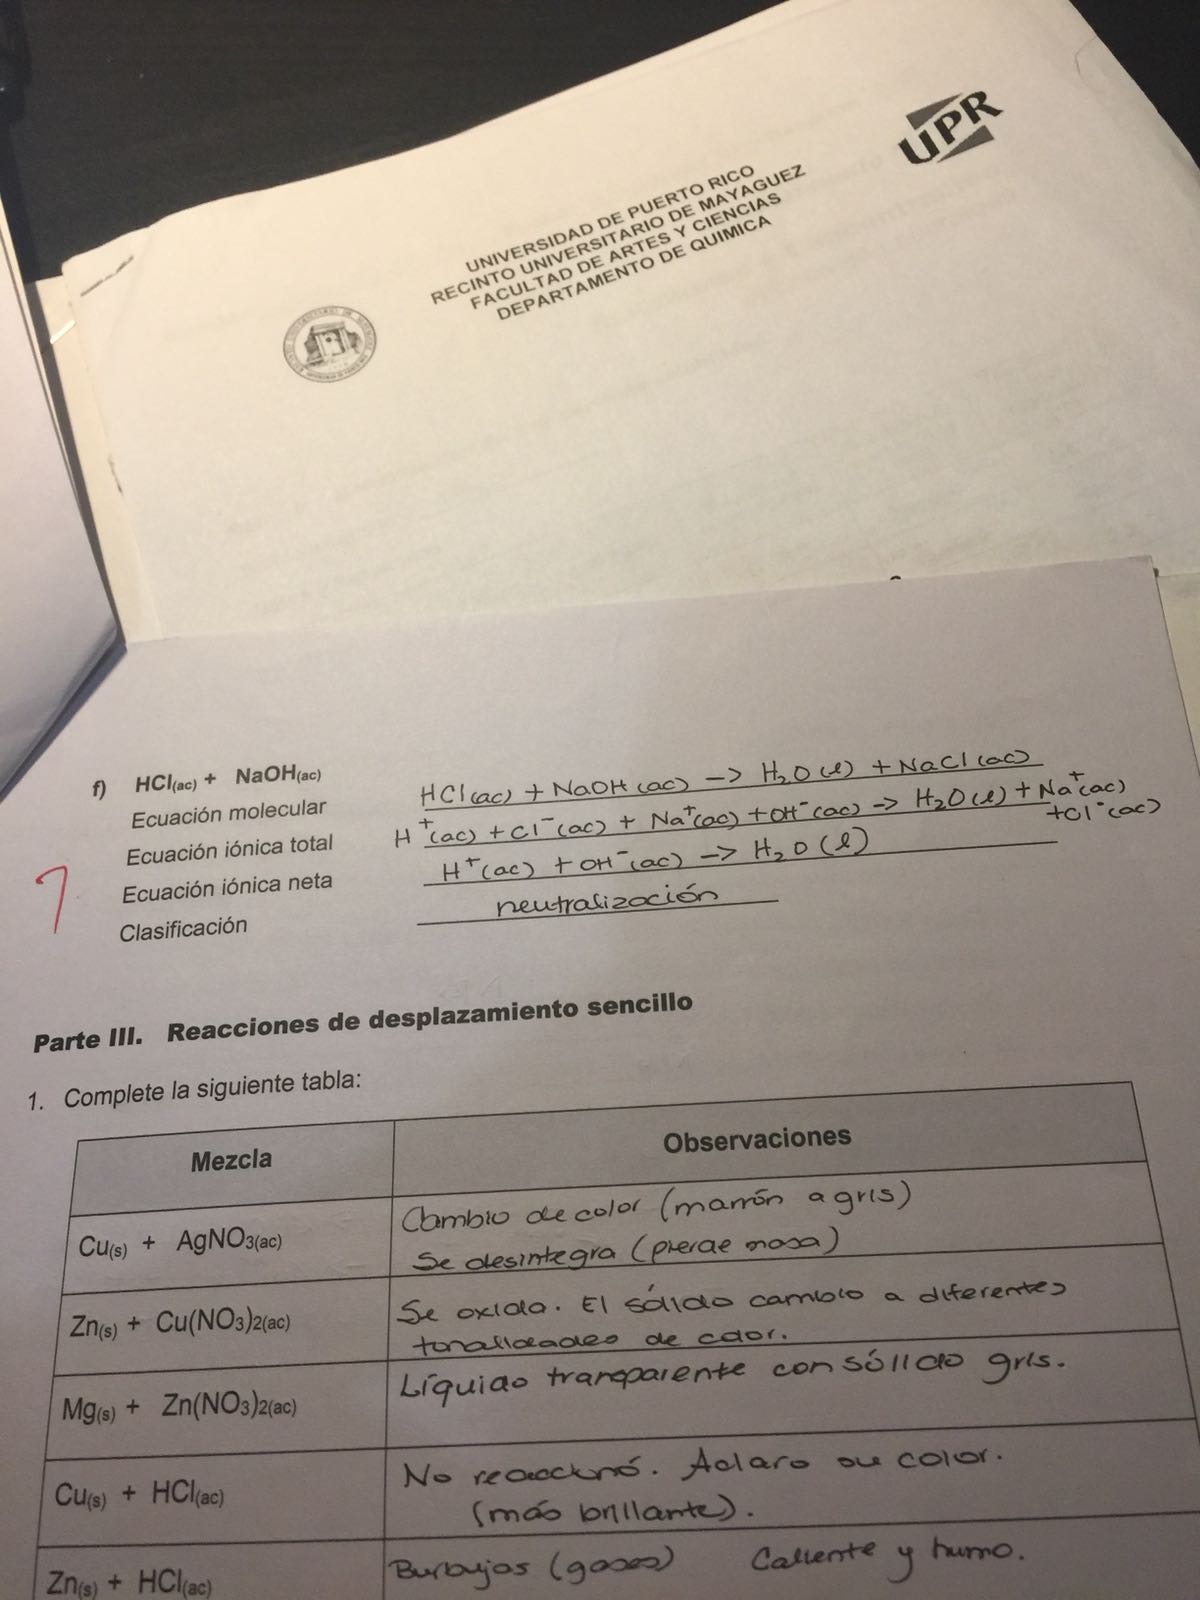 UPR
UNIVERSIDAD DE PUERTO RICO
RECINTO UNIVERSITARIO DE MAYAGUEZ
FACULTAD DE ARTES Y CIENCIAS
DEPARTAMENTO DE QUIMICA
f) HCl(ac) + NaOH(ac)
Ecuación molecular HCl(ac) + NaOH(ac) -> H₂O(l) + NaCl(ac)
Ecuación iónica total H⁺(ac) + Cl⁻(ac) + Na⁺(ac) + OH⁻(ac) -> H₂O(l) + Na⁺(ac)
+Cl⁻(ac)
Ecuación iónica neta H⁺(ac) + OH⁻(ac) -> H₂O(l)
Clasificación neutralización
7
Parte III. Reacciones de desplazamiento sencillo
1. Complete la siguiente tabla:
Mezcla Observaciones
Cu(s) + AgNO3(ac) Cambio de color (marrón a gris)
Se desintegra (pierde masa)
Zn(s) + Cu(NO3)2(ac) Se oxida. El sólido cambio a diferentes
tonalidades de color.
Mg(s) + Zn(NO3)2(ac) Líquido tranparente con sólido gris.
Cu(s) + HCl(ac) No reaccionó. Aclaro su color.
(más brillante).
Zn(s) + HCl(ac) Burbujas (gases) Caliente y humo.